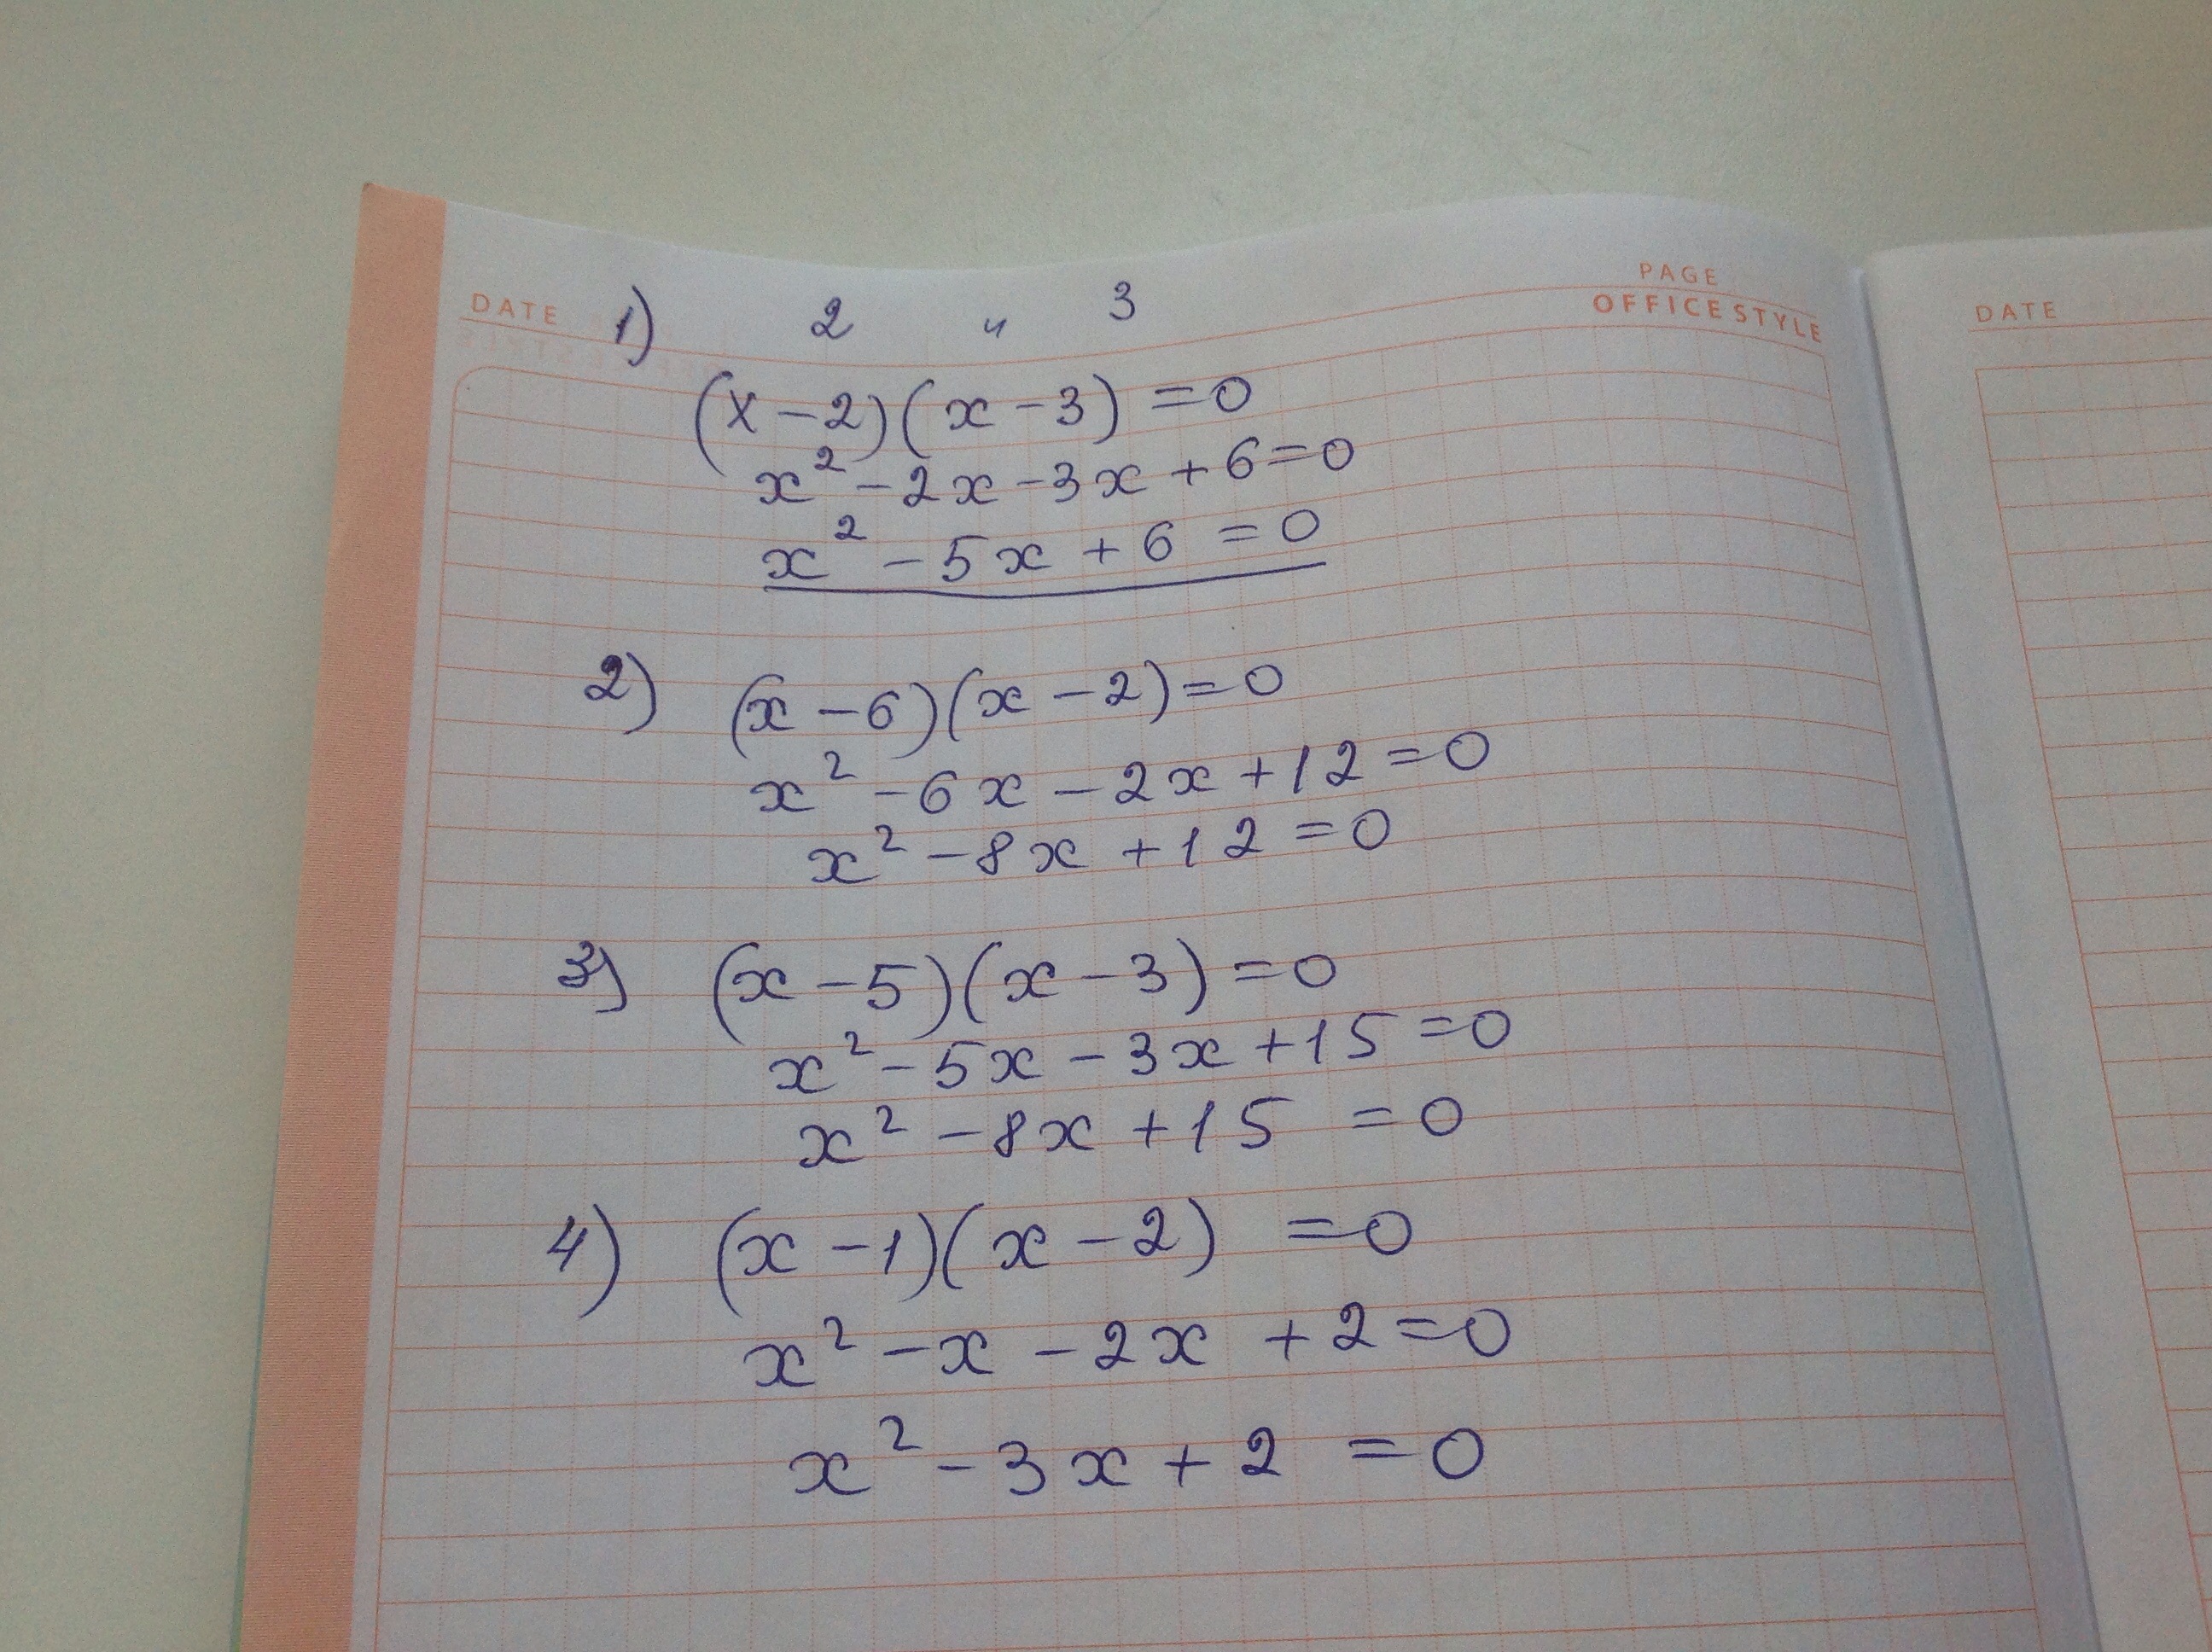 PAGE
DATE
OFFICE STYLE
DATE
1) 2 и 3
(x-2)(x-3)=0
x²-2x-3x+6=0
x²-5x+6=0
2) (x-6)(x-2)=0
x²-6x-2x+12=0
x²-8x+12=0
3) (x-5)(x-3)=0
x²-5x-3x+15=0
x²-8x+15=0
4) (x-1)(x-2)=0
x²-x-2x+2=0
x²-3x+2=0